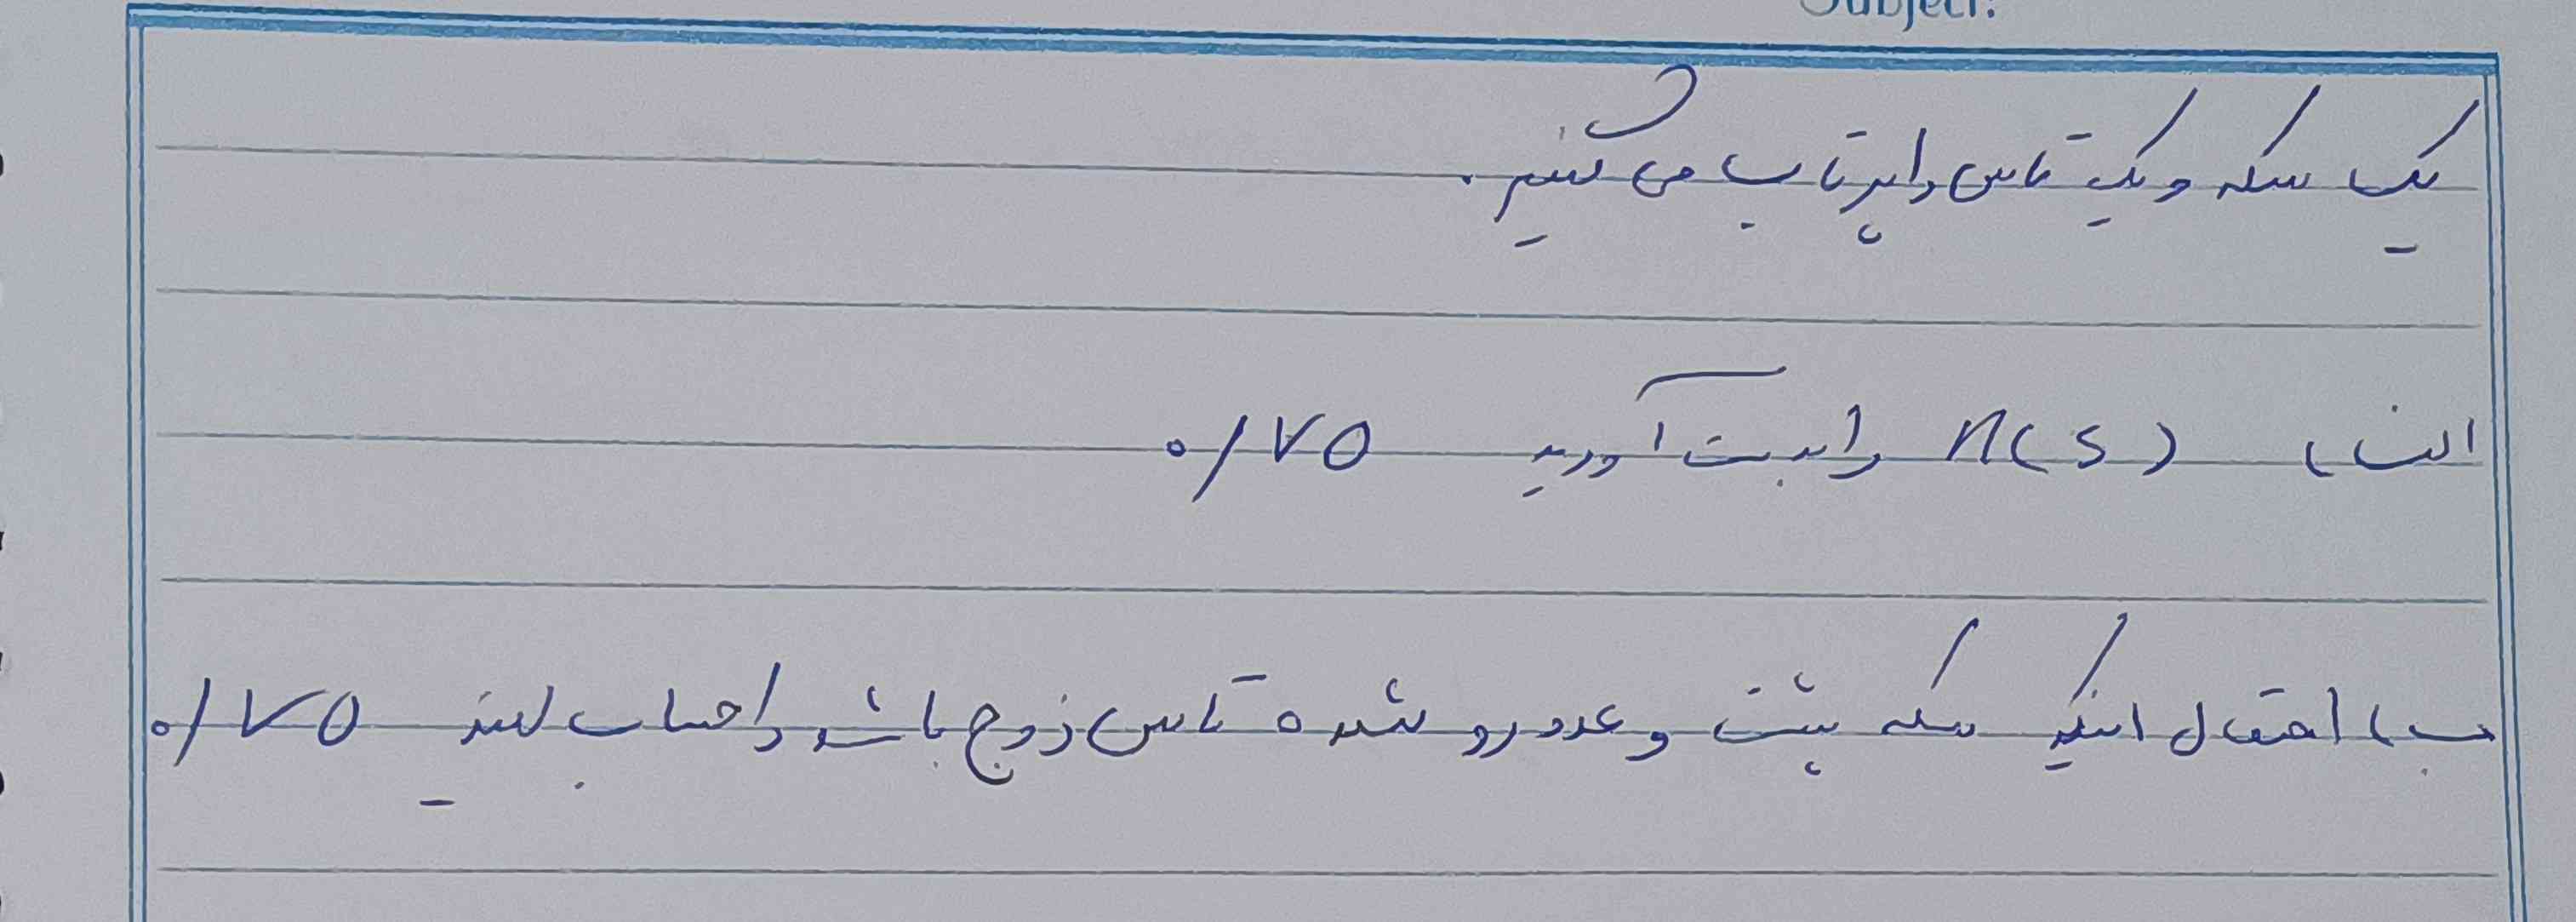 Subject:
یک سکه و یک تاس را پرتاب می کنیم.
الف) n(s) را بدست آورید ۰/۷۵
ب) احتمال اینکه سکه پشت و عدد رو شده تاس زوج باشد را حساب کنید ۰/۷۵